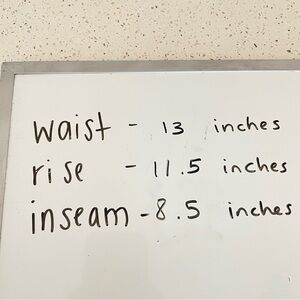 waist - 13 inches
rise - 11.5 inches
inseam - 8.5 inches